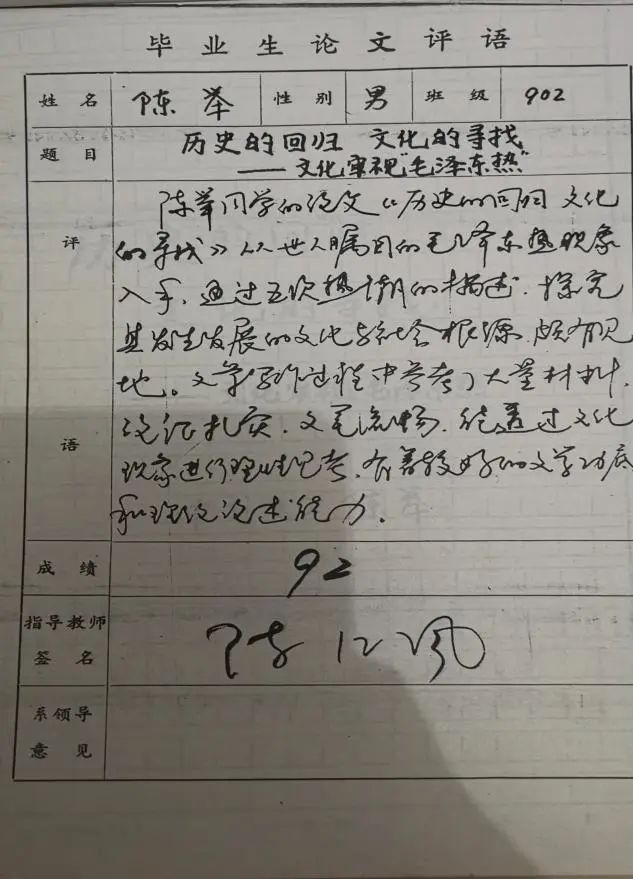 毕业生论文评语
姓名 陈举 性别 男 班级 902
题目 历史的回归 文化的寻找
——文化审视"毛泽东热"
评语
陈举同学的论文《历史的回归 文化
的寻找》从世人瞩目的毛泽东热现象
入手,通过五次热潮的描述,探究
其发生发展的文化与社会根源,颇有见
地。文章写作过程中参考了大量材料,
论证扎实,文笔流畅,能透过文化
现象进行理性思考,有着较好的文学功底
和理论论述能力.
成绩 92
指导教师
签名 陈
系领导
意见